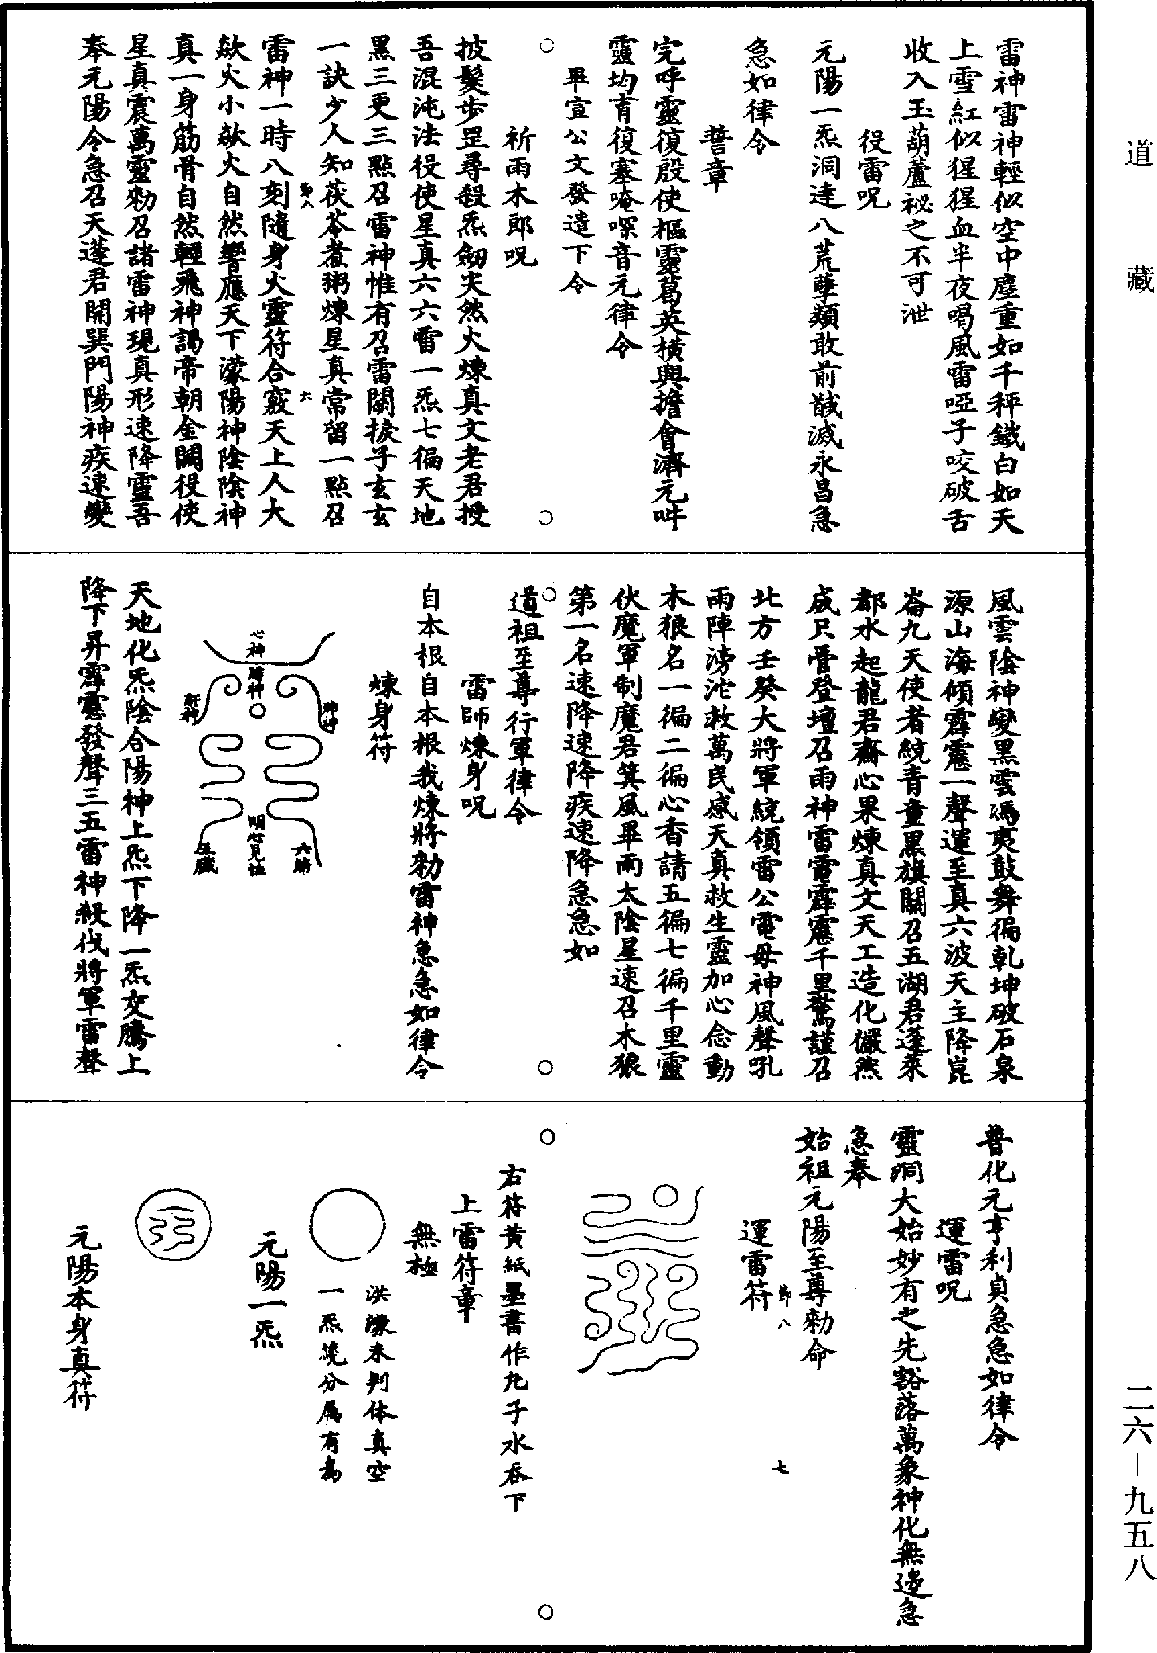 道藏
雷神雷神輕似空中塵重如千秤鐵白如天
上雪紅似猩猩血半夜喝風雷啞子咬破舌
收入玉葫蘆祕之不可泄
役雷呪
元陽一炁洞達八荒孽類敢前馘滅永昌急
急如律令
誓章
完呼靈復殷使樞靈葛英橫輿擔會濟元吽
靈均育復塞唵㗁音元律令
畢宣公文發遣下令
祈雨木郎呪
披髮步罡尋殺炁劒尖然火煉真文老君授
吾混沌法役使星真六六雷一炁七徧天地
黑三更三點召雷神惟有召雷關捩子玄玄
一訣少人知茯苓煮粥煉星真常留一點召
雷神一時八刻隨身火靈符合竅天上人大
歘火小歘火自然響應天下濛陽神陰陰神
真一身筋骨自然輕飛神謁帝朝金闕役使
星真震萬靈勑召諸雷神現真形速降靈吾
奉元陽令急召天蓬君開巽門陽神疾速變
風雲陰神變黑雲馮夷鼓舞徧乾坤破石泉
源山海傾霹靂一聲運至真六波天主降崑
崙九天使者統青童黑旗關召五湖君蓬萊
都水起龍君齋心果煉真文天工造化儼然
成只管登壇召雨神雷電霹靂千里驚謹召
北方壬癸大將軍統領雷公電母神風聲吼
雨陣滂沱救萬民感天真救生靈加心念動
木狼名一徧二徧心香請五徧七徧千里靈
伏魔軍制魔君箕風畢雨太陰星速召木狼
第一名速降速降疾速降急急如
道祖至尊行軍律令
雷師煉身呪
自本根自本根我煉將勑雷神急急如律令
煉身符
心神
明心見性
六腑
五臟
天地化炁陰合陽神上炁下降一炁交騰上
降下昇霹靂發聲三五雷神殺伐將軍雷聲
普化元亨利貞急急如律令
運雷呪
靈洞大始妙有之先豁落萬象神化無邊急
急奉
始祖元陽至尊勑命
運雷符
右符黃紙墨書作丸子水吞下
上雷符章
無極
洪濛未判体真空
一炁纔分屬有為
元陽一炁
元陽本身真符
二六—九五八